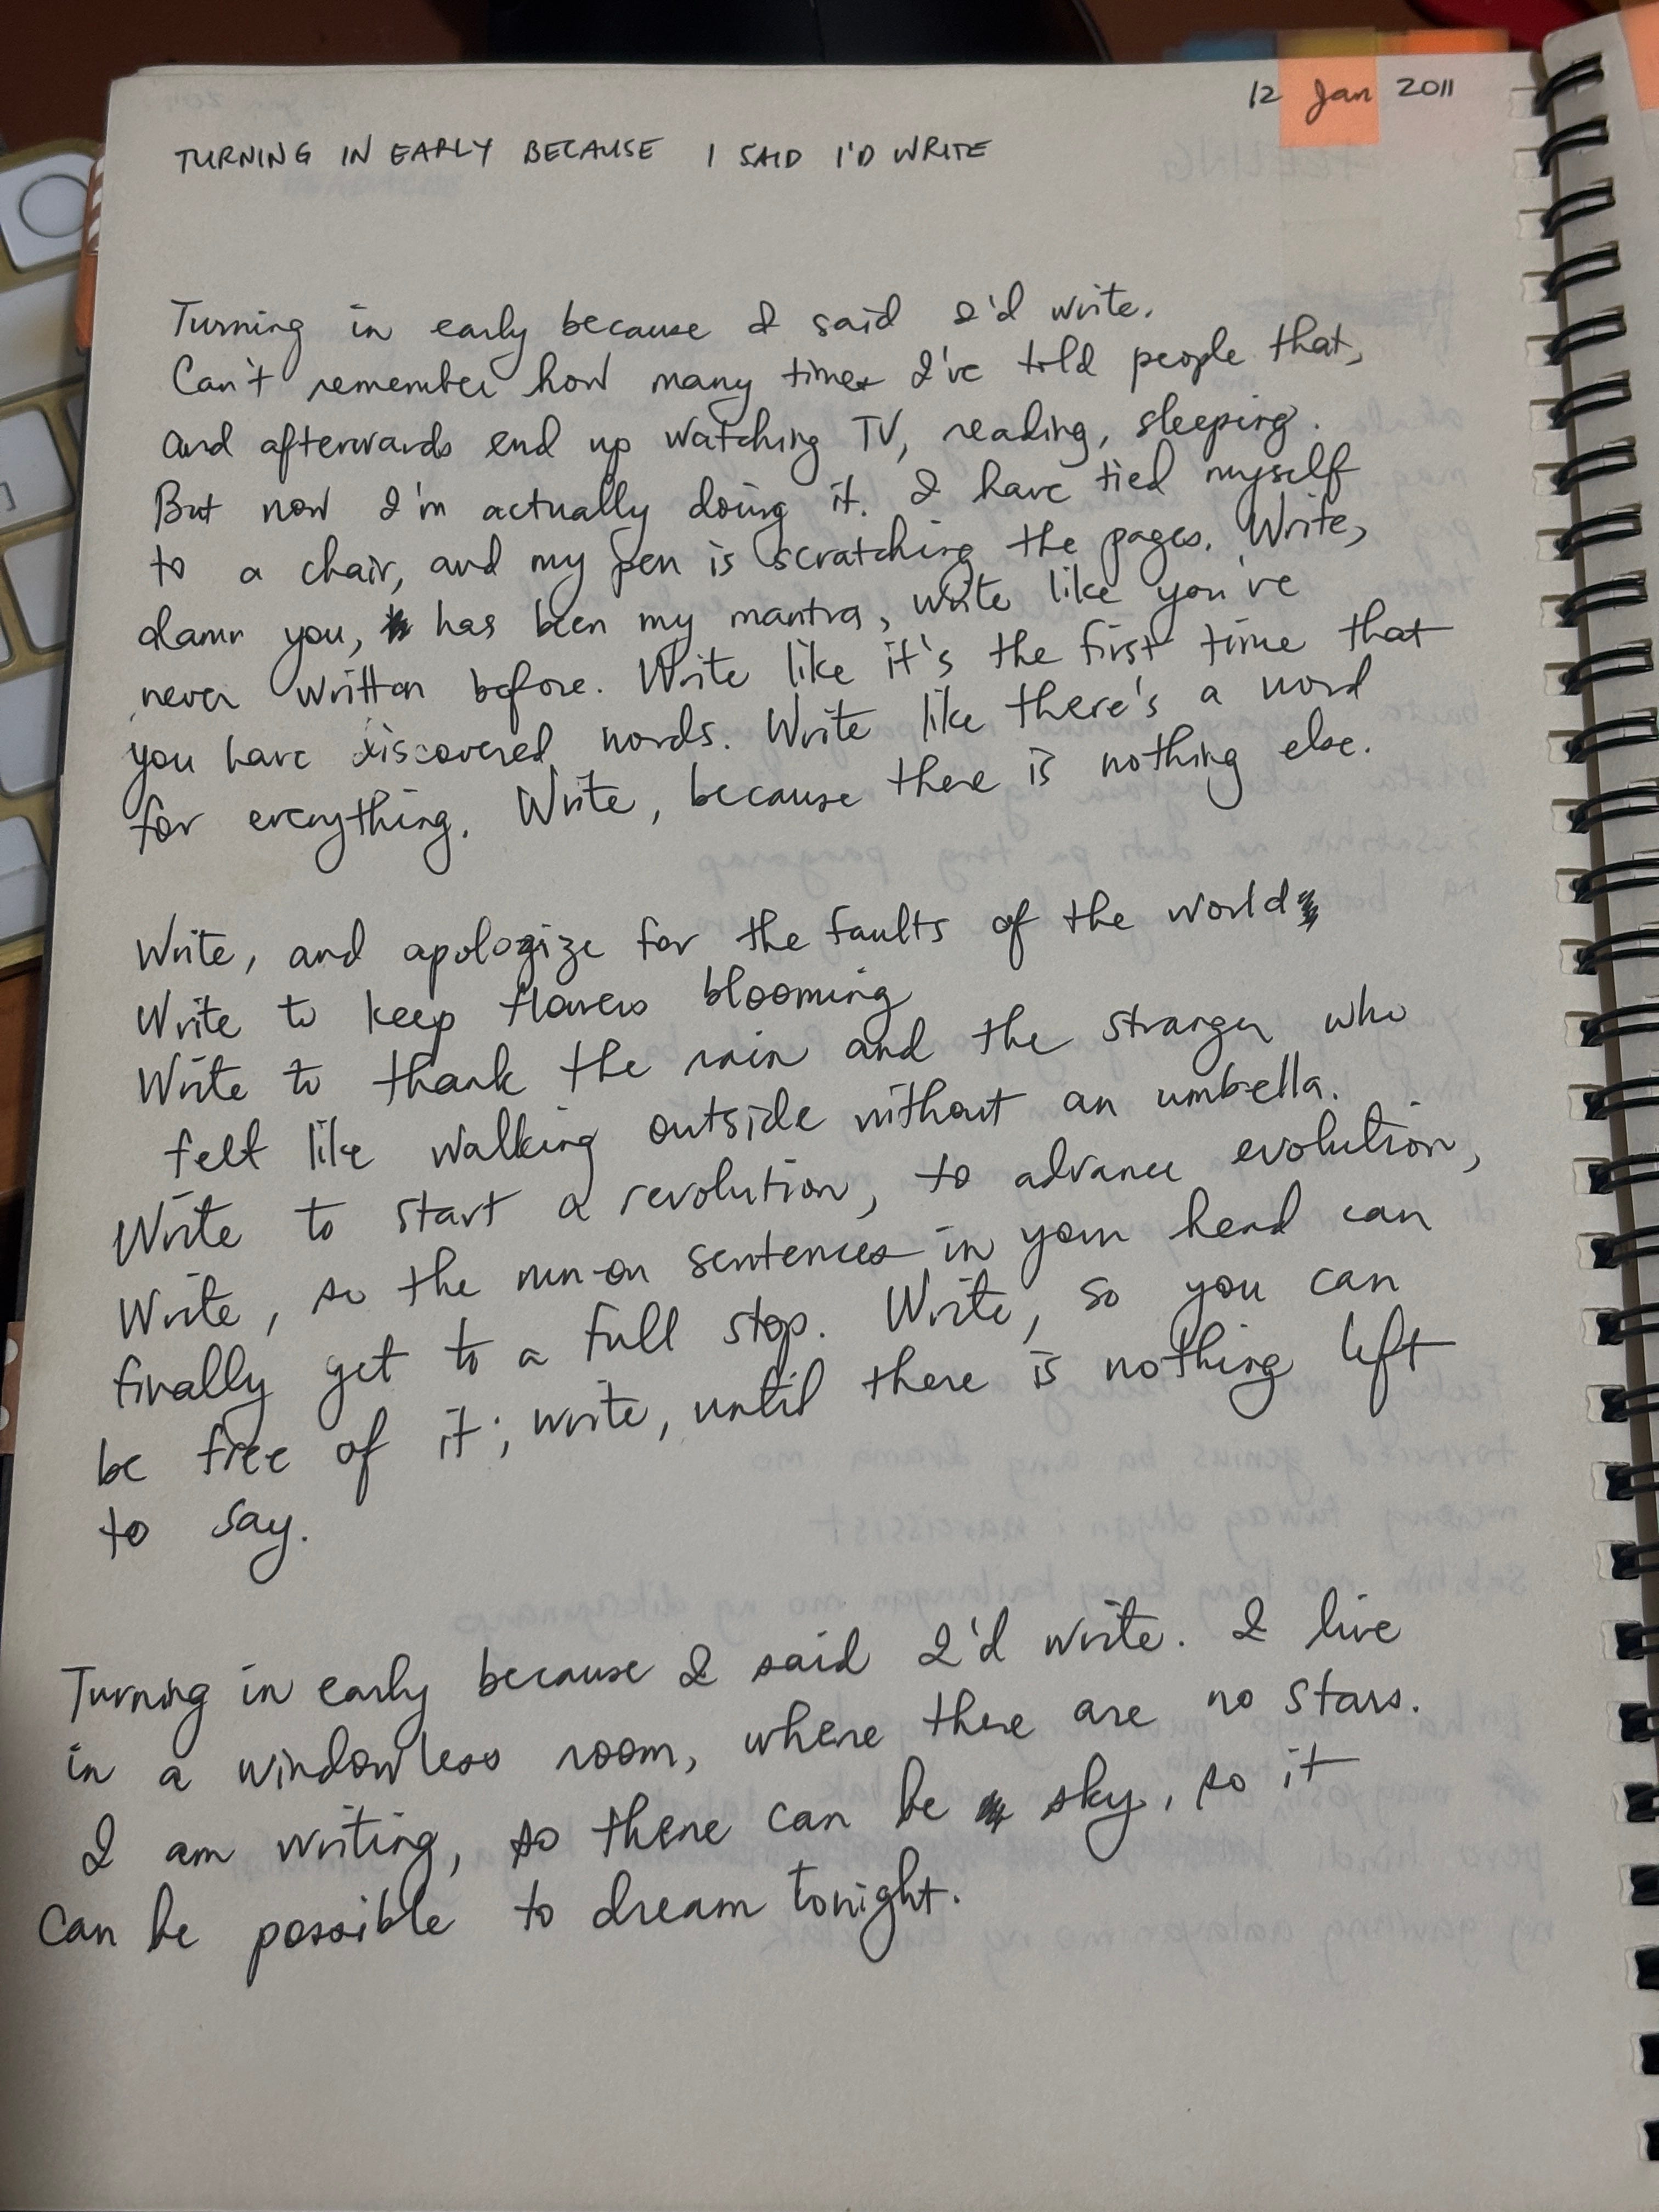 12 Jan 2011
TURNING IN EARLY BECAUSE I SAID I'D WRITE
Turning in early because I said I'd write.
Can't remember how many times I've told people that,
and afterwards end up watching TV, reading, sleeping.
But now I'm actually doing it. I have tied myself
to a chair, and my pen is scratching the pages. Write,
damn you, has been my mantra, write like you've
never written before. Write like it's the first time that
you have discovered words. Write like there's a word
for everything. Write, because there is nothing else.
Write, and apologize for the faults of the world
Write to keep flowers blooming
Write to thank the rain and the stranger who
felt like walking outside without an umbrella.
Write to start a revolution, to advance evolution,
Write, so the run-on sentences in your head can
finally get to a full stop. Write, so you can
be free of it; write, until there is nothing left
to say.
Turning in early because I said I'd write. I live
in a windowless room, where there are no stars.
I am writing, so there can be sky, so it
can be possible to dream tonight.